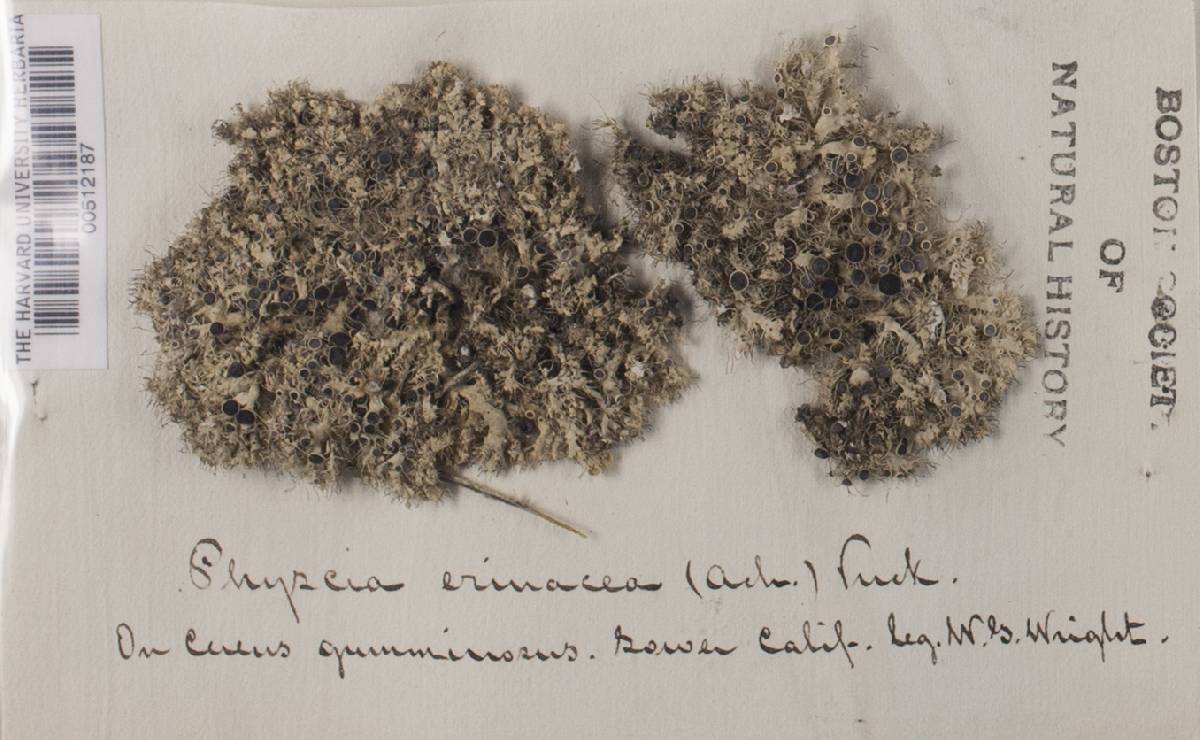 THE HARVARD UNIVERSITY HERBARIA
00512187
BOSTON SOCIETY
OF
NATURAL HISTORY
Physcia erinacea (Ach.) Tuck.
On Cereus gumminosus. Lower Calif. leg. W. G. Wright.